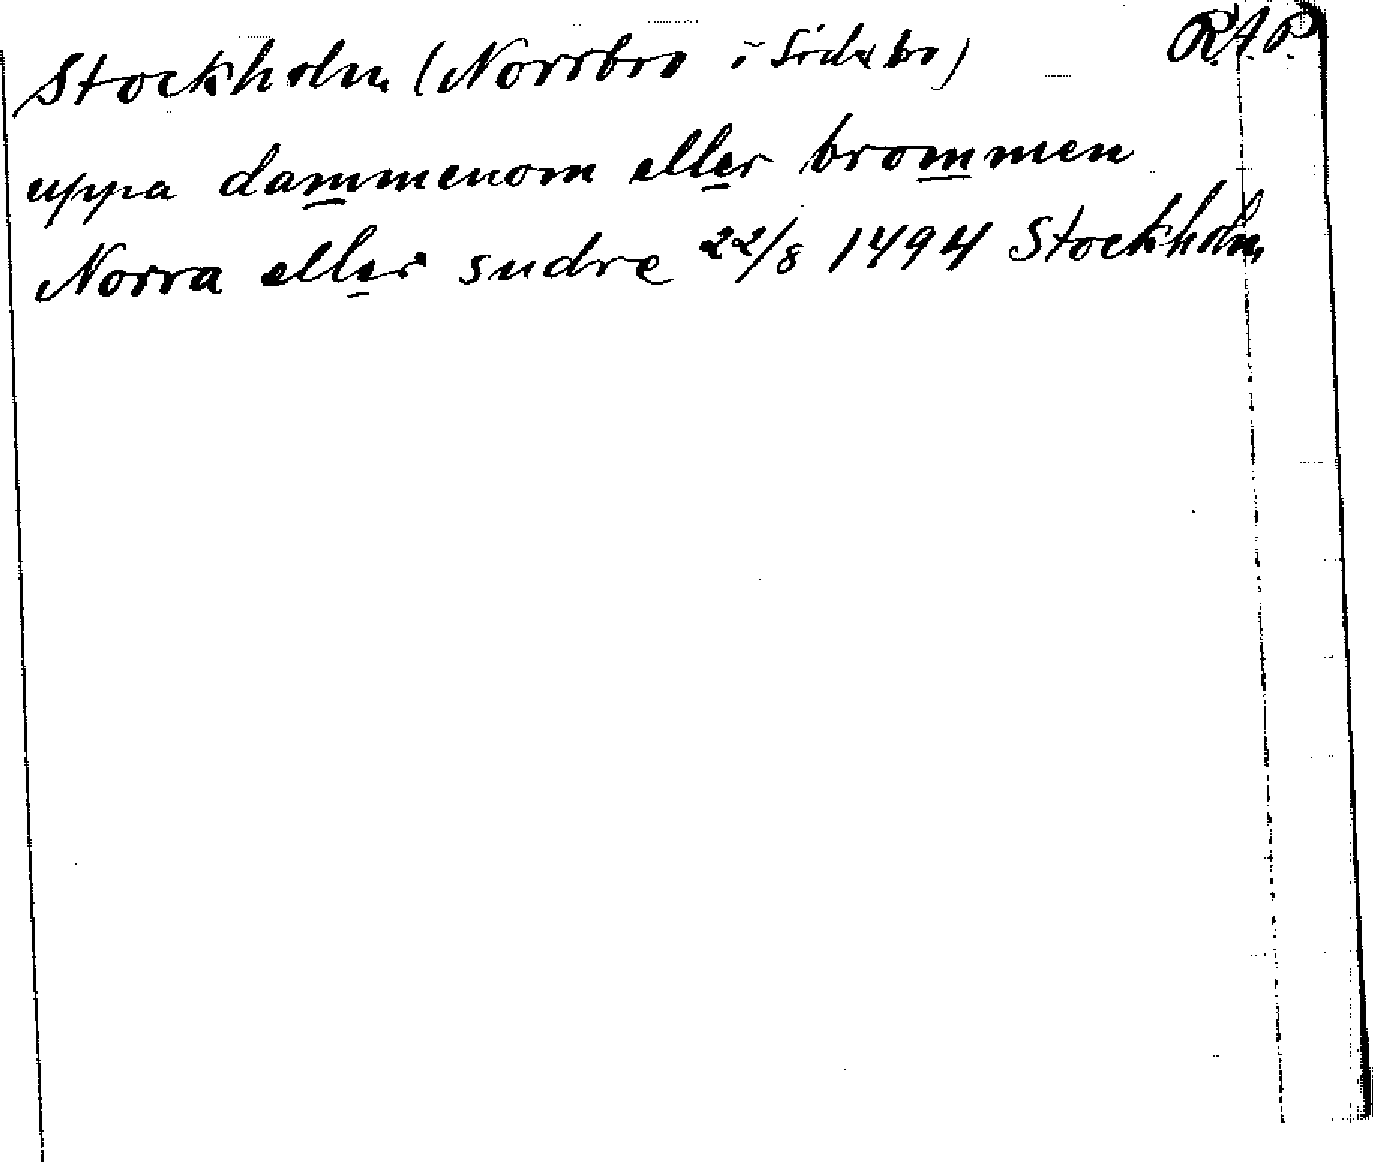 Stockholm (Norrbro i Söderbro) R.A.P.
uppa dammenom eller brommen
Norra eller sudre 22/8 1494 Stockholm